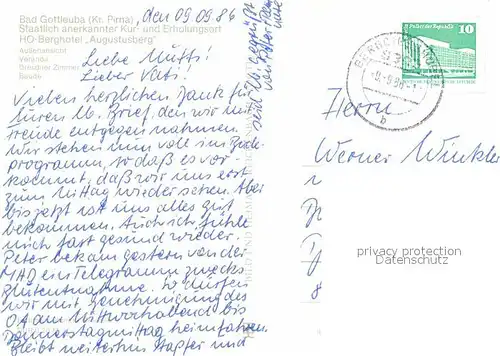 Bad Gottleuba (Kr. Pirna)
Staatlich anerkannter Kur- und Erholungsort
HO-Berghotel „Augustusberg"
Außenansicht
Veranda
Dresdner Zimmer
Beside
, den 09.09.86
Liebe Mutti!
Lieber Vati!
Vielen herzlichen Dank für
Euren lb. Brief, den wir mit
Freude entgegen nahmen.
Wir stehen nun voll im
programm, so daß es vor-
kommt, daß wir uns erst
zum Mittag wiedersehen. Aber
bis jetzt ist uns alles gut
bekommen. Auch ich fühle
mich fast gesund wieder.
Peter bekam gestern von der
MHO ein Telegramm zwecks
Blutentnahme. So dürfen
wir mit Genehmigung des
OA am Mittwochabend bis
Donnerstagmittag heimfahren.
Bleibt weiterhin tapfer und
seid lb. gegrüßt
von Peter
10
Palast der Republik
b
Herrn
Werner Winkle
privacy protection
Datenschutz